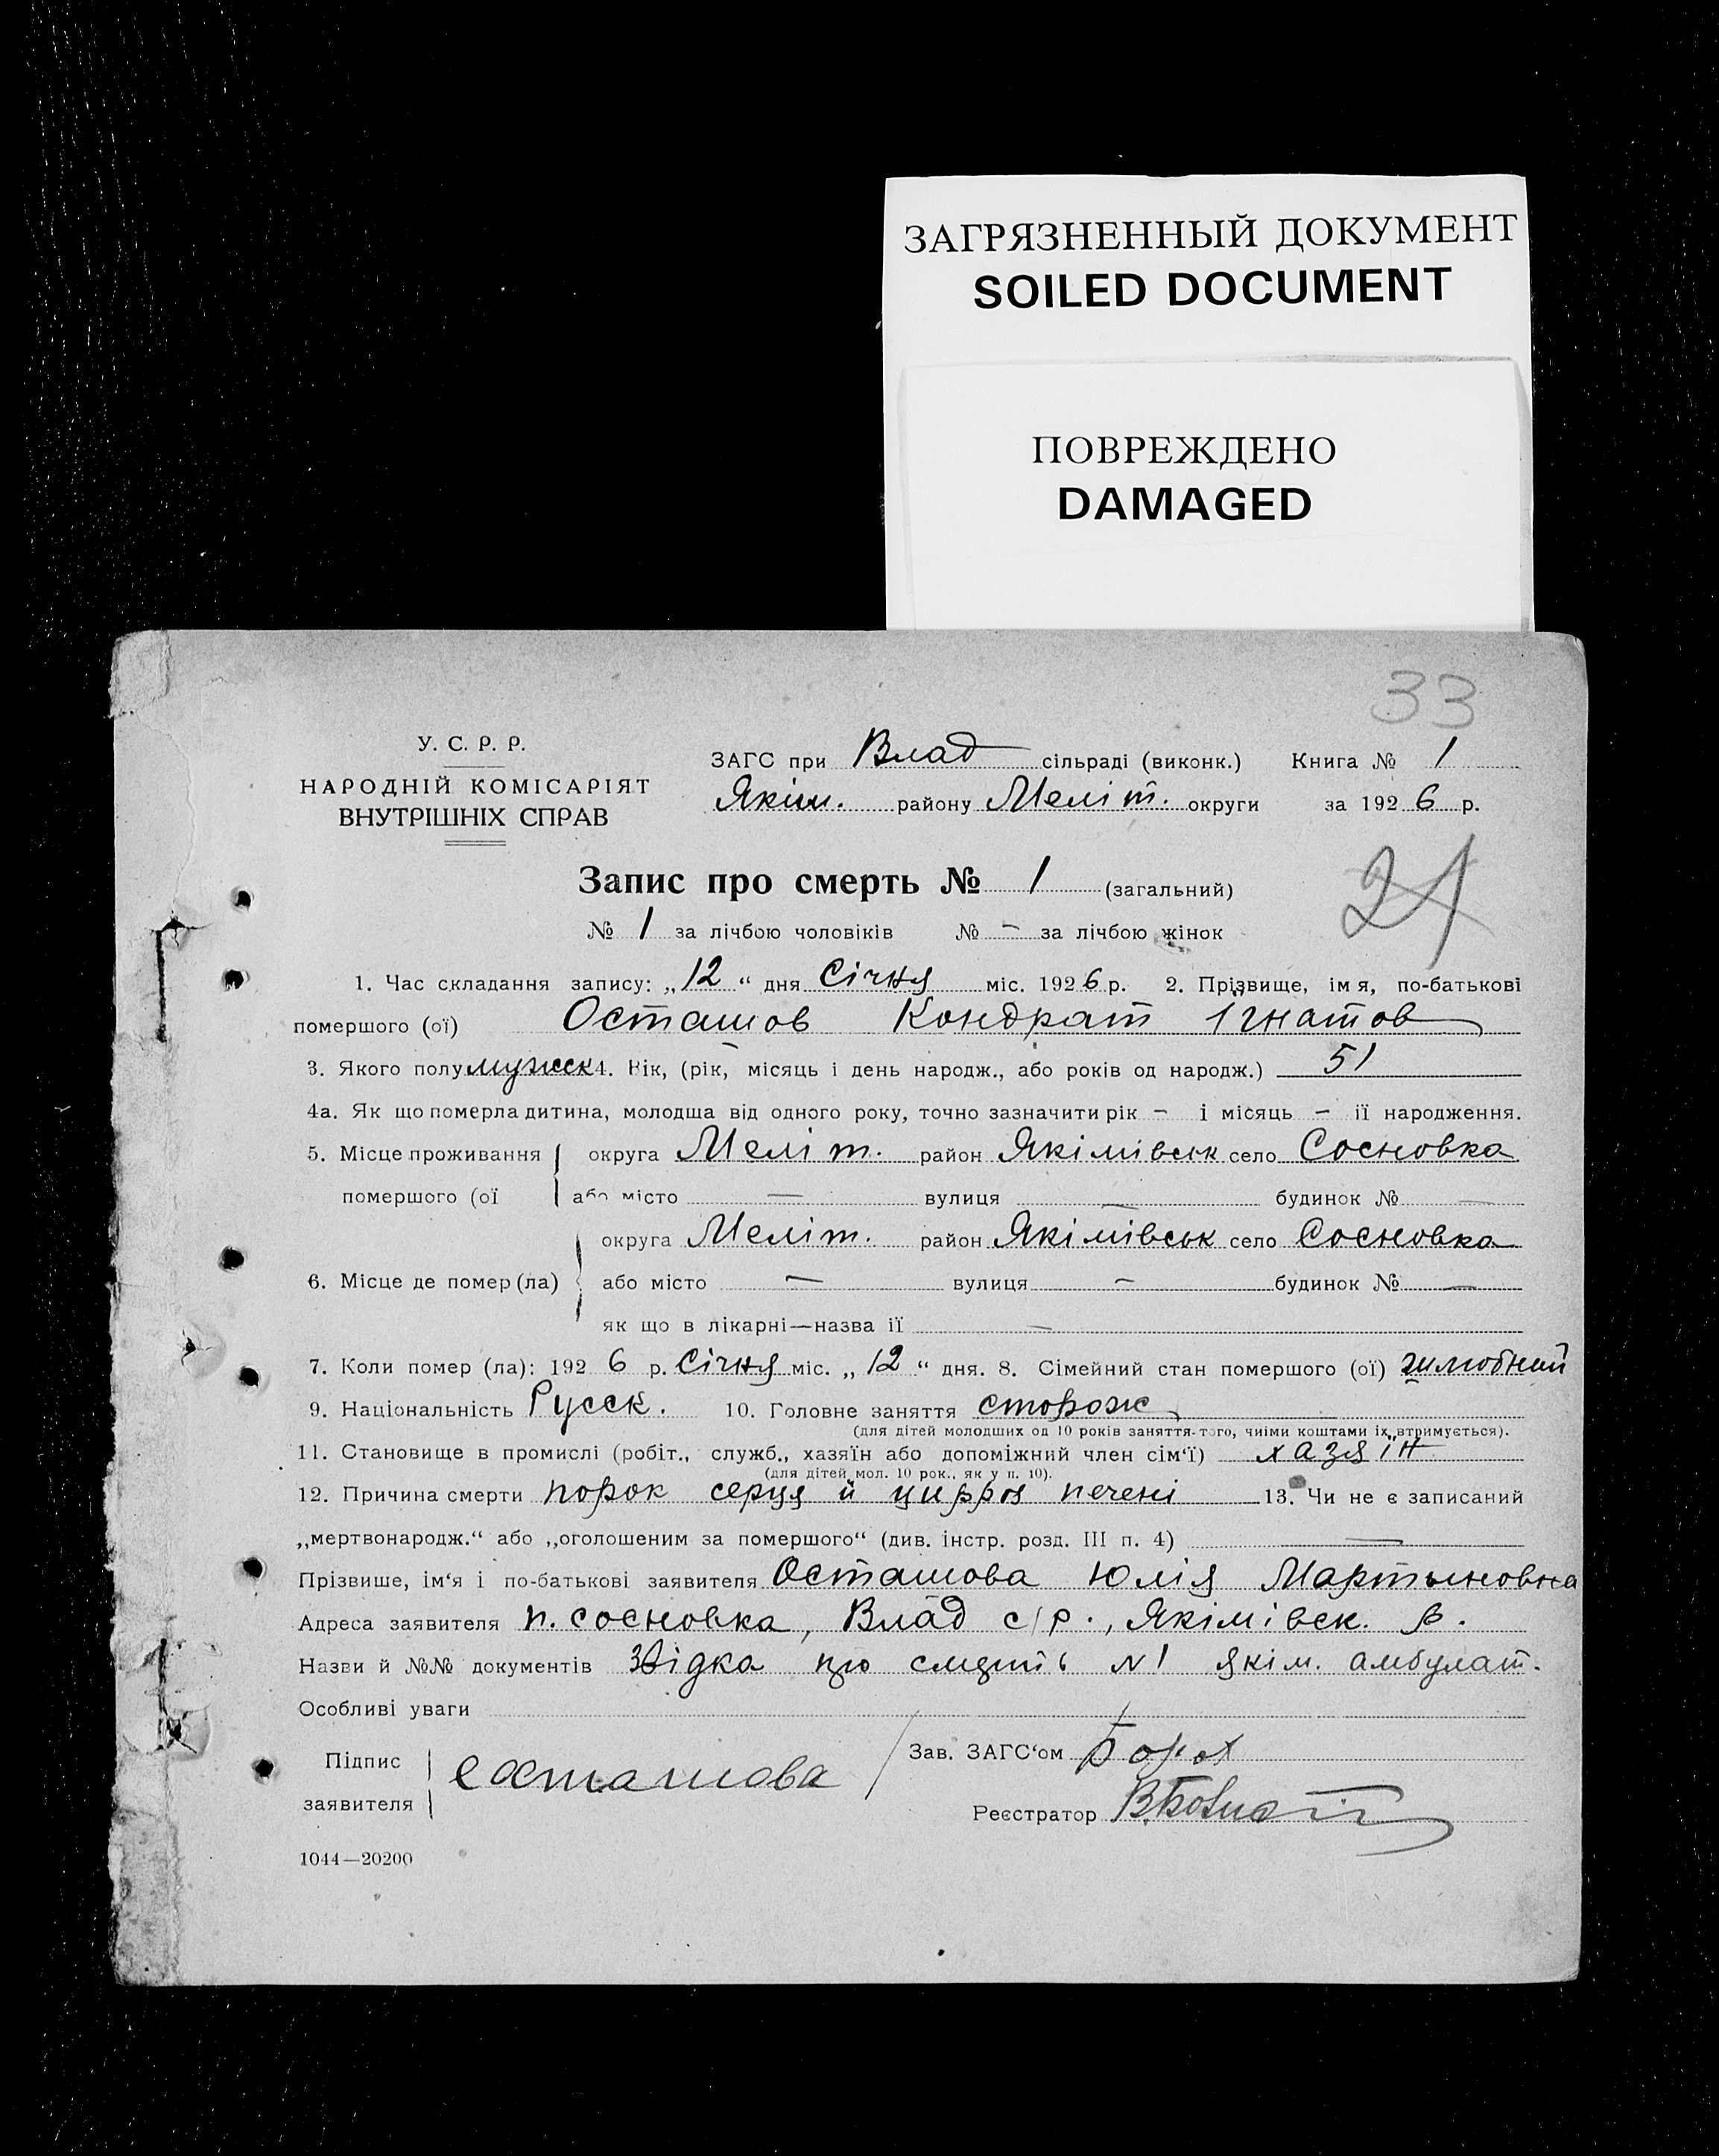 ЗАГРЯЗНЕННЫЙ ДОКУМЕНТ
SOILED DOCUMENT
ПОВРЕЖДЕНО
DAMAGED
33
У. С. Р. Р.
НАРОДНІЙ КОМІСАРІЯТ
ВНУТРІШНІХ СПРАВ
ЗАГС при Влад сільраді (виконк.) Книга № 1
Якім. району Меліт. округи за 1926 р.
Запис про смерть № 1 (загальний)
21
№ 1 за лічбою чоловіків № – за лічбою жінок
1. Час складання запису: „12“ дня Січня міс. 1926 р. 2. Прізвище, імя, по-батькові
помершого (ої) Осташов Кондрат Ігнатов
3. Якого полу мужск 4. Вік, (рік, місяць і день народж., або років од народж.) 51
4а. Як що померла дитина, молодша від одного року, точно зазначити рік – і місяць – її народження.
5. Місце проживання округа Меліт. район Якімівськ село Сосновка
помершого (ої або місто — вулиця — будинок № —
округа Меліт. район Якімівськ село Сосновка
6. Місце де помер (ла) або місто — вулиця – будинок № —
як що в лікарні—назва ії —
7. Коли помер (ла): 1926 р. Січня міс. „12“ дня. 8. Сімейний стан помершого (ої)
9. Національність Русск. 10. Головне заняття сторож
(для дітей молодших од 10 років заняття того, чиїми коштами їх втримується).
11. Становище в промислі (робіт., служб., хазяїн або допоміжний член сім‘ї) хазяїн
(для дітей мол. 10 рок., як у п. 10).
12. Причина смерти порок серця й цирроз печені 13. Чи не є записаний
„мертвонародж.“ або „оголошеним за помершого“ (див. інстр. розд. III п. 4) —
Прізвише, ім‘я і по-батькові заявителя Осташова Юлія Мартыновна
Адреса заявителя п. Сосновка, Влад с/р., Якімівск. р.
Назви й №№ документів Звідка про смерть №1 Якім. амбулат.
Особливі уваги
Підпис
заявителя Єосташова
Зав. ЗАГС‘ом
Реєстратор
1044—20200